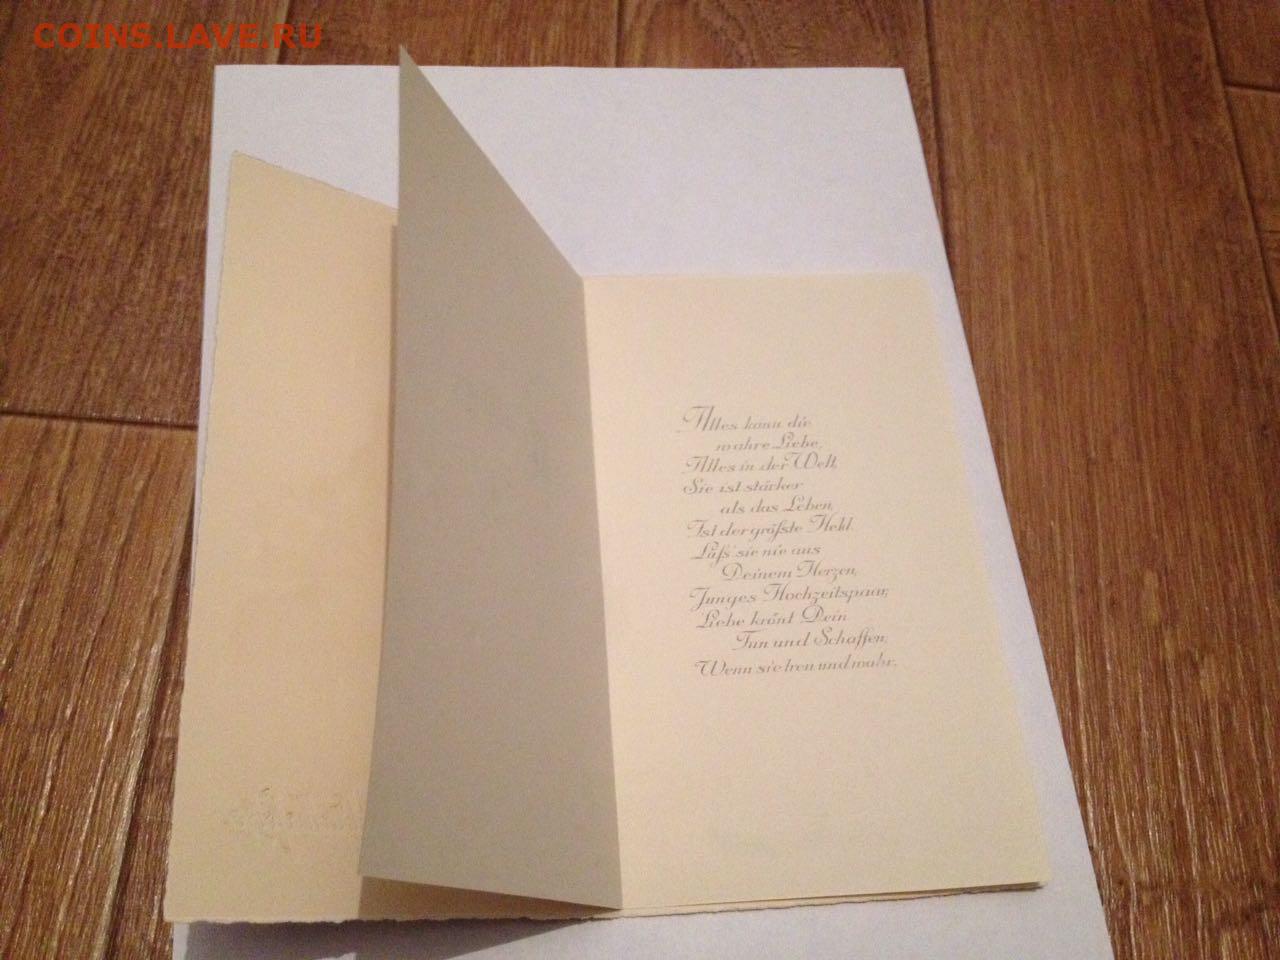 COINS.LAVE.RU
Alles kann die
wahre Liebe,
Alles in der Welt,
Sie ist stärker
als das Leben,
Ist der größte Held.
Laß' sie nie aus
Deinem Herzen,
Junges Hochzeitspaar,
Liebe krönt Dein
Tun und Schaffen,
Wenn sie treu und wahr.